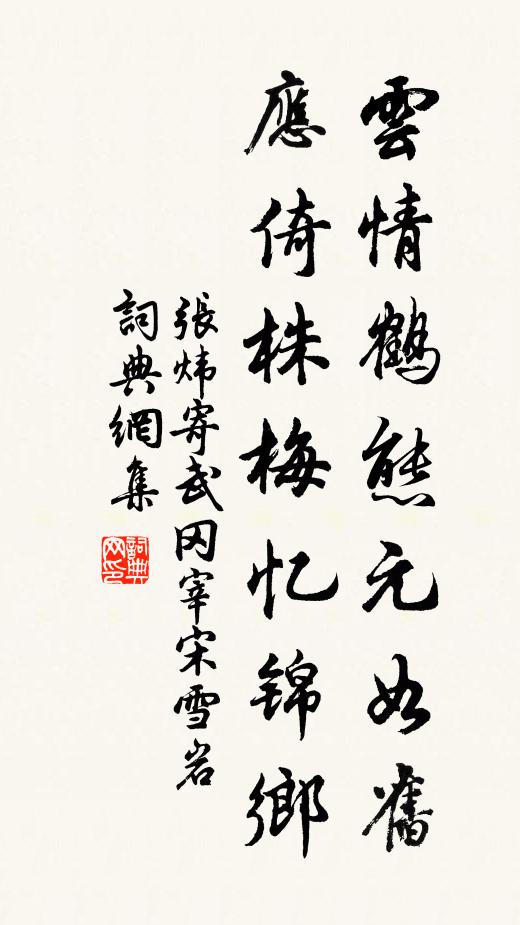 雲情鶴態元如舊
應倚株梅忆錦鄉
張炜寄武冈宰宋雪岩
詞典網集
詞典网印